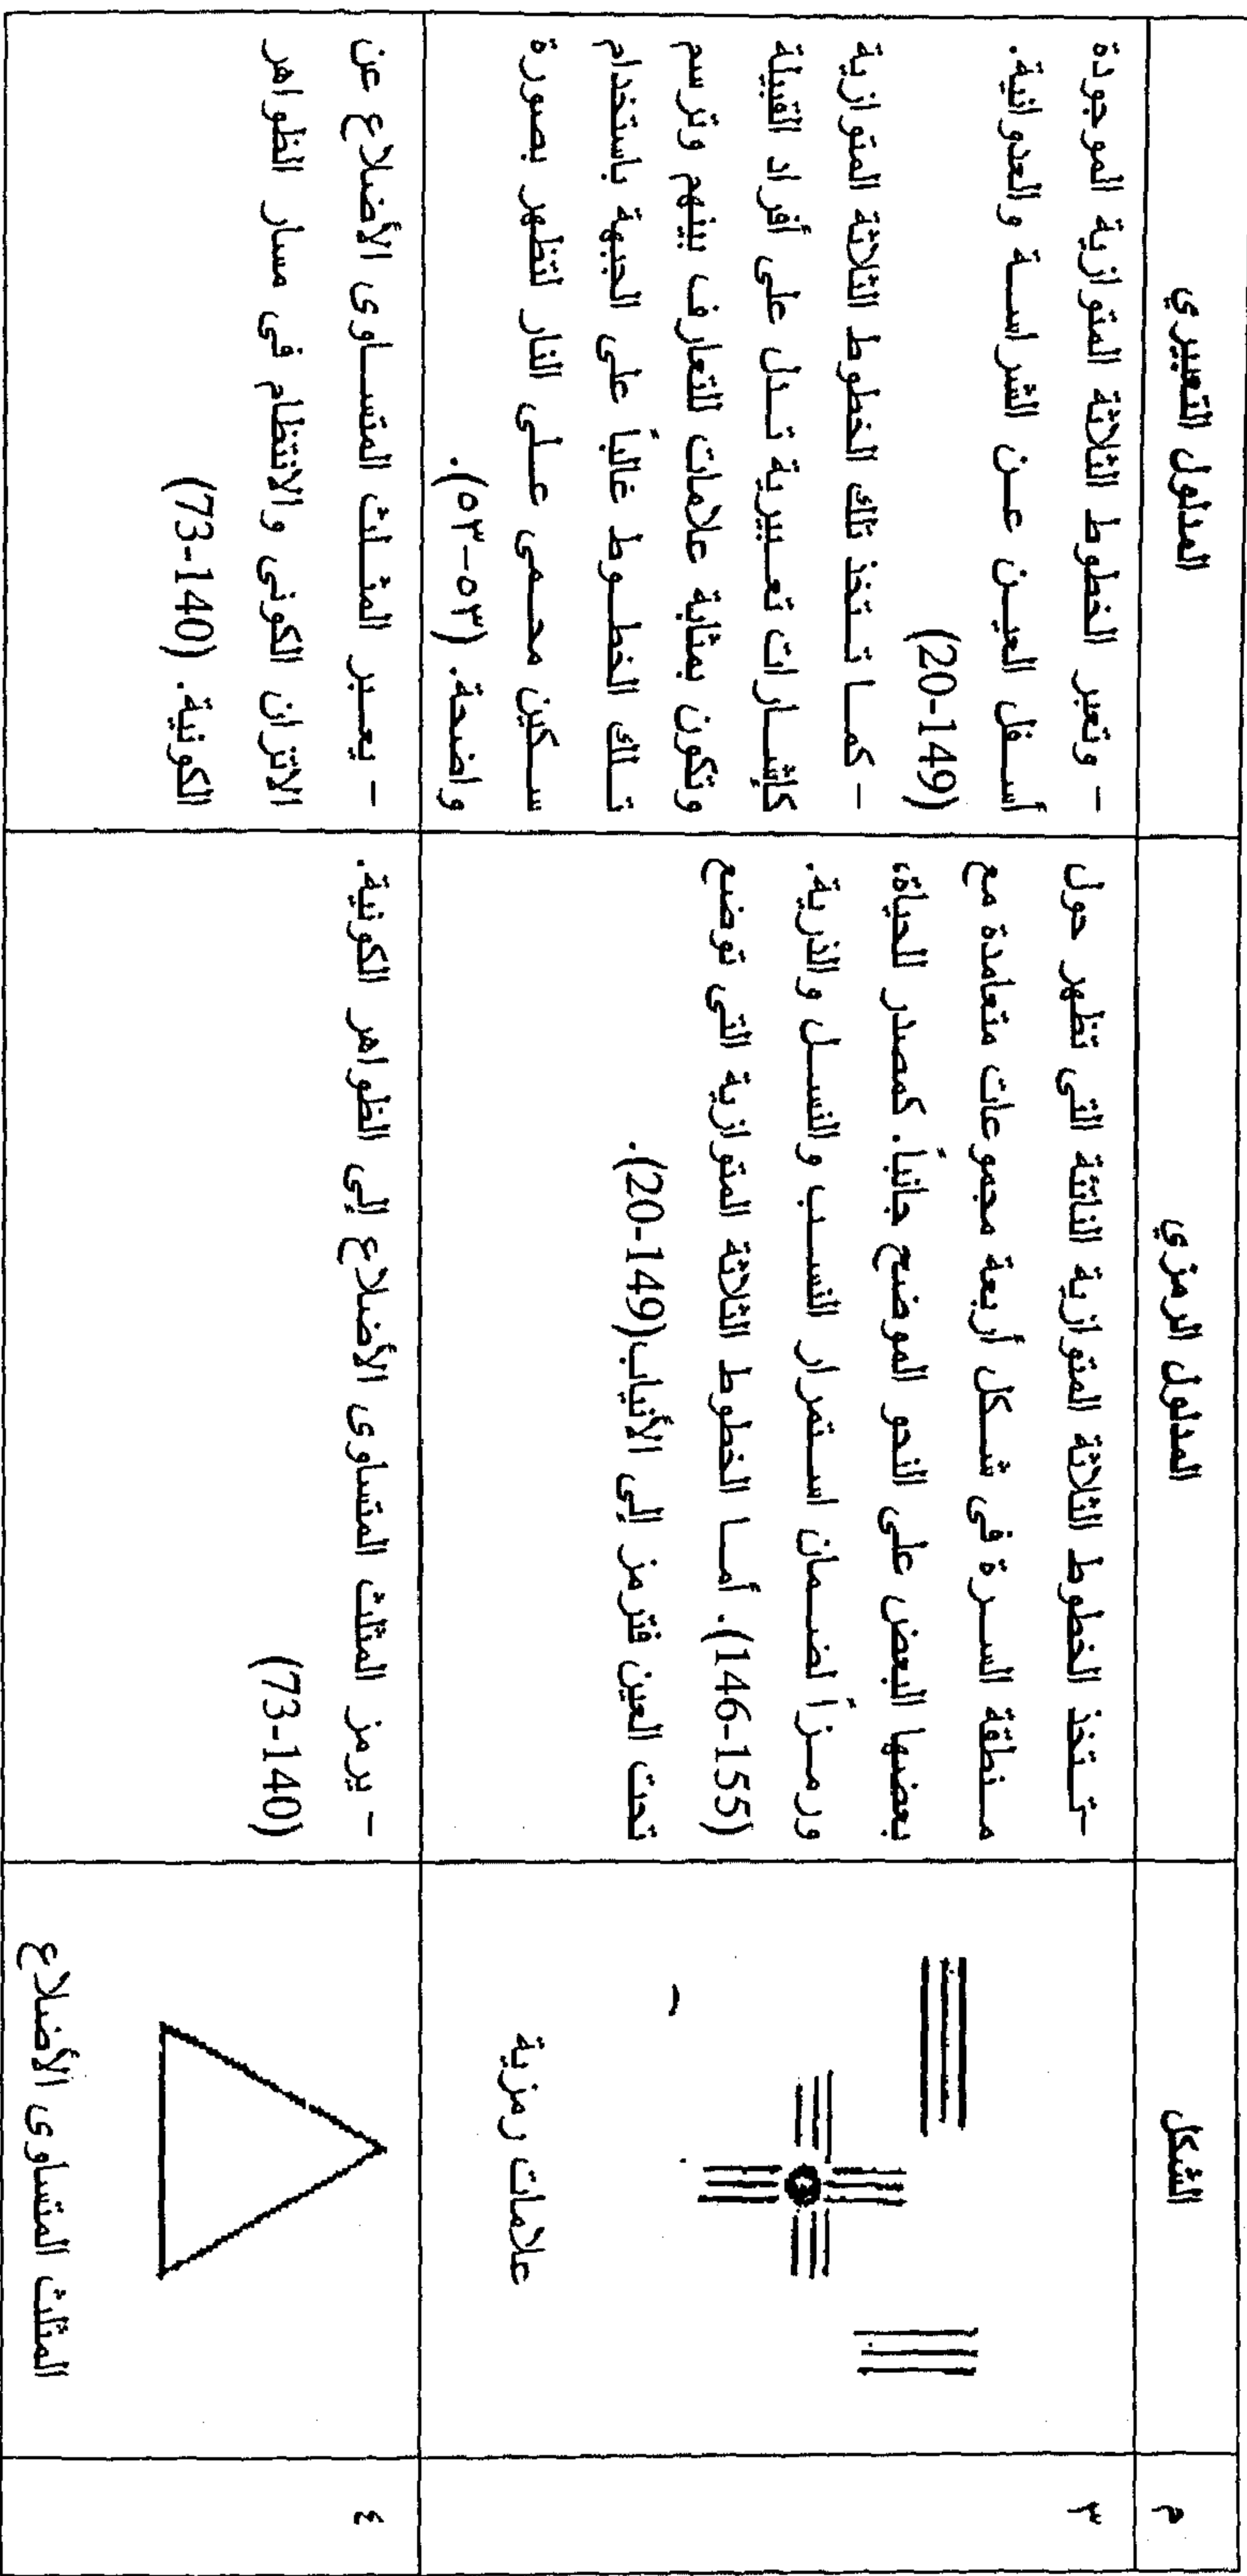 م
الشكل
المدلول الرمزي
المدلول التعبيري
٣
علامات رمزية
-تتخذ الخطوط الثلاثة المتوازية الناتئة التى تظهر حول
منطقة السرة فى شكل أربعة مجموعات متعامدة مع
بعضها البعض على النحو الموضح جانباً. كمصدر للحياة،
ورمزاً لضمان استمرار النسب والنسل والذرية.
(146-155). أما الخطوط الثلاثة المتوازية التى توضع
تحت العين فترمز إلى الأنياب(149-20).
- وتعبر الخطوط الثلاثة المتوازية الموجودة
أسفل العين عن الشراسة والعدوانية.
(20-149)
- كما تتخذ تلك الخطوط الثلاثة المتوازية
كإشارات تعبيرية تدل على أفراد القبيلة
وتكون بمثابة علامات للتعارف بينهم وترسم
تلك الخطوط غالباً على الجبهة باستخدام
سكين محمى على النار لتظهر بصورة
واضحة. (٥٣-٥٣).
٤
المثلث المتساوى الأضلاع
- يرمز المثلث المتساوى الأضلاع إلى الظواهر الكونية.
(73-140)
- يعبر المثلث المتساوى الأضلاع عن
الاتزان الكونى والانتظام فى مسار الظواهر
الكونية. (73-140)